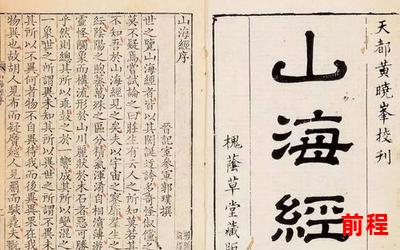 天都黃曉峯校刊
山海經
槐蔭草堂藏版
山海經序
晉記室參軍郭璞撰
世之覽山海經者皆以其閎誕迂誇多奇怪俶儻之
莫不疑焉嘗試論之曰莊生有云人之所知莫若其
不知吾於山海經見之矣夫以宇宙之寥廓羣生之
紜陰陽之煦蒸萬殊之區分精氣渾淆自相濆薄遊
靈怪觸象而構流形於山川麗狀於木石者惡可勝
乎然則總其所以乖鼓之於一響成其所以變混之
一象世之所謂異未知其所以異世之所謂不異未
其所以不異何者物不自異待我而後異異果在我
物異也故胡人見布而疑黂越人見罽而駭毳夫
前程